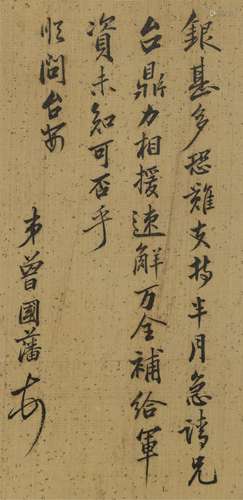 銀甚多恐難支持半月急請兄
台鼎力相援速解万全補給軍
資未知可否乎
順問台安
弟曾國藩